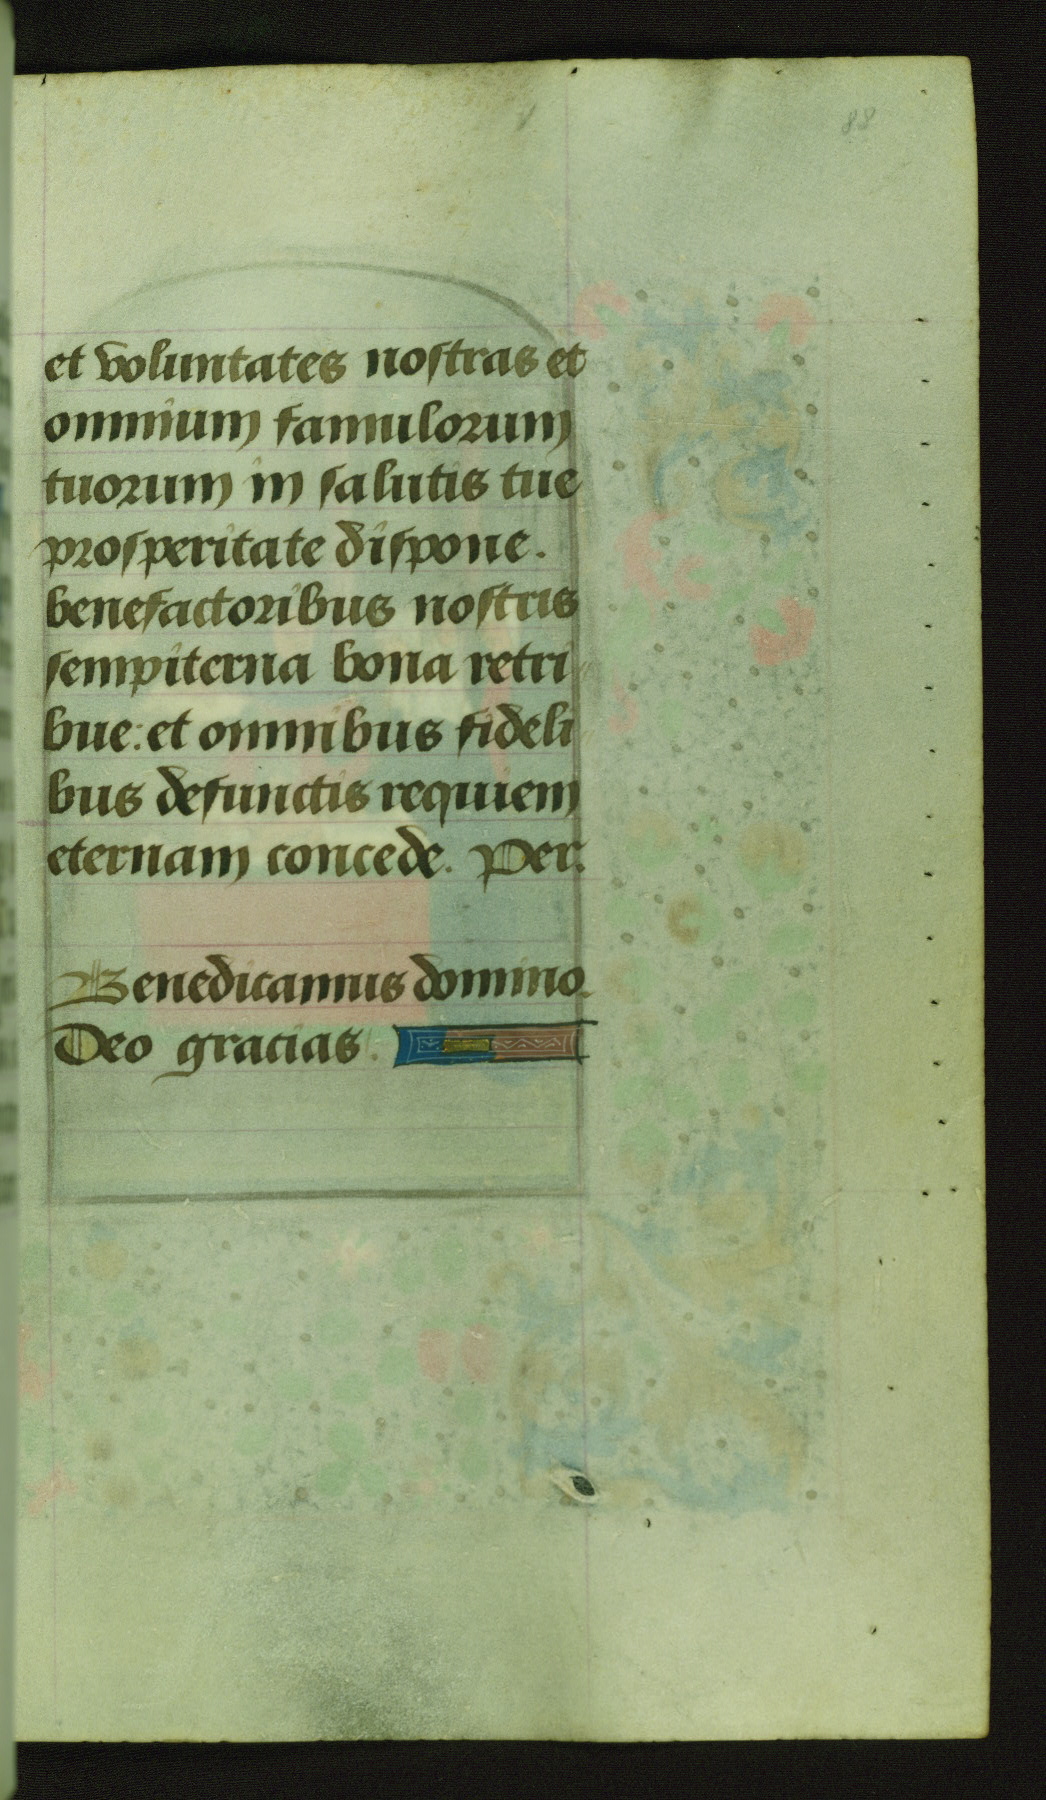 88
et voluntates nostras et
omnium famulorum
tuorum in salutis tue
prosperitate dispone.
benefactoribus nostris
sempiterna bona retri
bue: et omnibus fideli
bus defunctis requiem
eternam concede. Per.
Benedicamus domino.
Deo gracias.